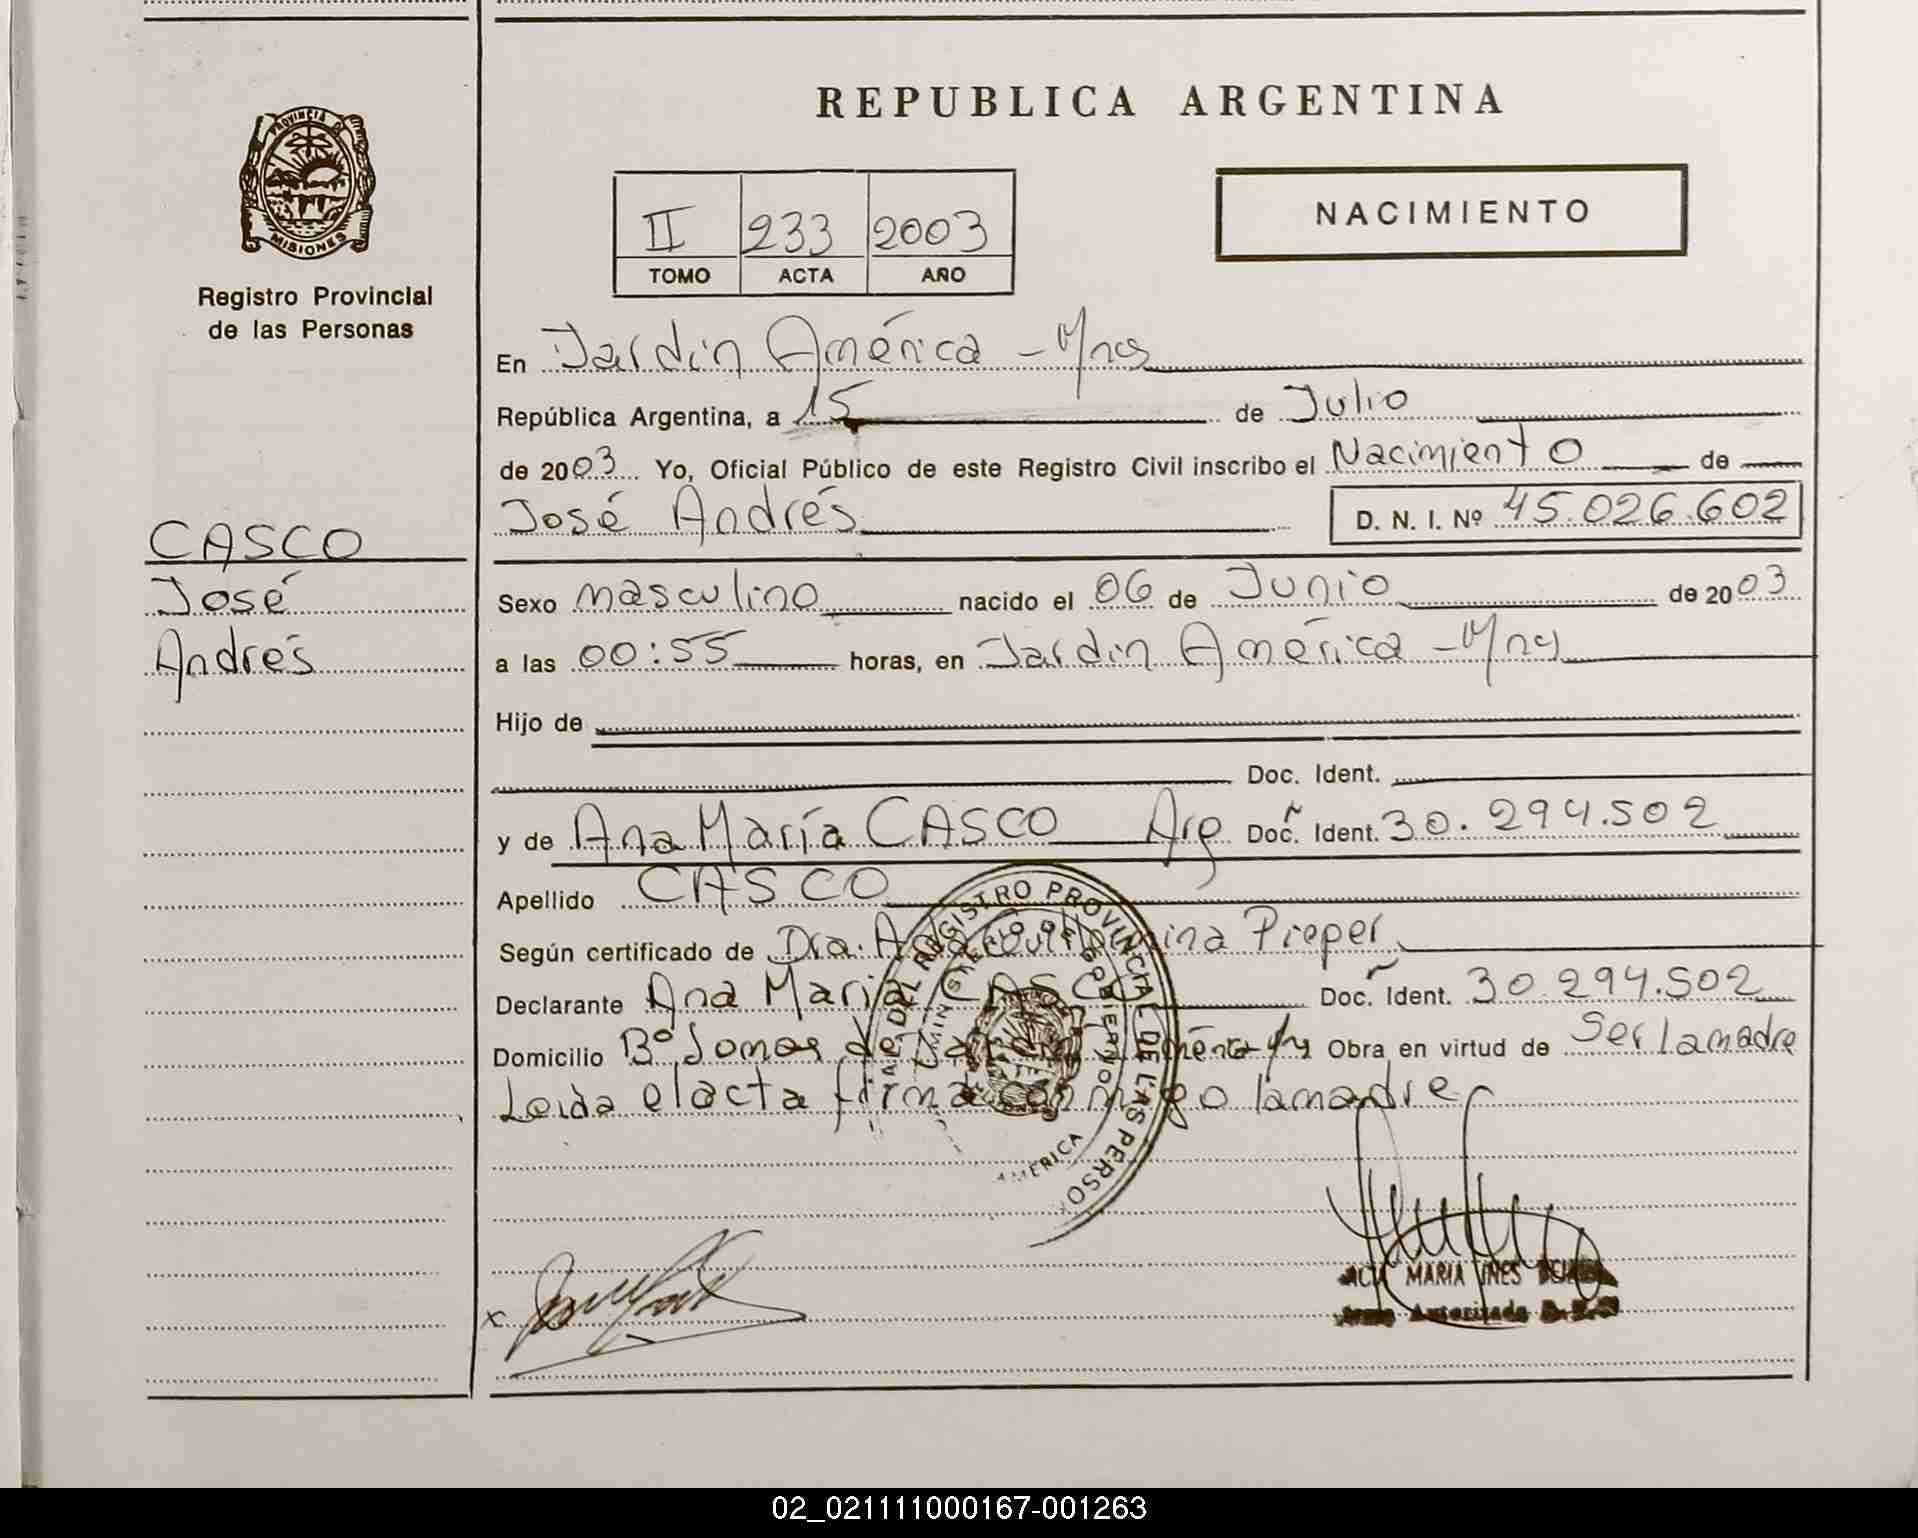 REPUBLICA ARGENTINA
PROVINCIA DE
MISIONES
Registro Provincial
de las Personas
II 233 2003
TOMO ACTA AÑO
NACIMIENTO
CASCO
José
Andrés
En Jardin América - Mnes
República Argentina, a 15 de Julio
de 2003 Yo, Oficial Público de este Registro Civil inscribo el Nacimiento de
José Andrés D. N. I. Nº 45.026.602
Sexo masculino nacido el 06 de Junio de 2003
a las 00:55 horas, en Jardin América - Mnes
Hijo de
Doc. Ident.
y de Ana María CASCO Arg Doc. Ident. 30.294.502
Apellido CASCO
Según certificado de Dra. Pieper
Declarante Ana Maria CASCO Doc. Ident. 30.294.502
Domicilio Bº Lomas de Obra en virtud de Ser la madre
Leida el acta firma conmigo la madre
REGISTRO PROVINCIAL DE LAS PERSO
AMERICA
MARIA INES
Autorizada
02_021111000167-001263